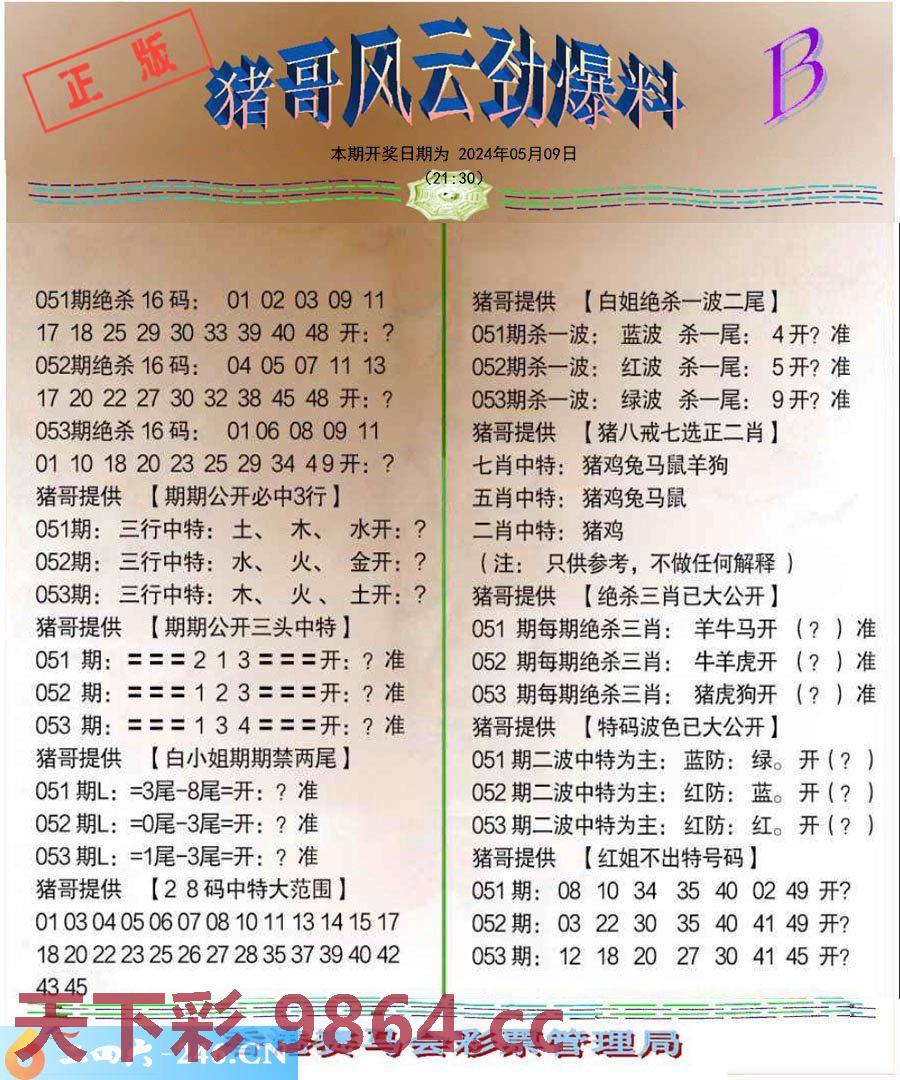 正版
猪哥风云劲爆料
B
本期开奖日期为 2024年05月09日
(21:30)
051期绝杀 16 码： 01 02 03 09 11
17 18 25 29 30 33 39 40 48 开：?
052期绝杀 16 码： 04 05 07 11 13
17 20 22 27 30 32 38 45 48 开：?
053期绝杀 16 码： 01 06 08 09 11
01 10 18 20 23 25 29 34 49 开：?
猪哥提供 【期期公开必中3行】
051期： 三行中特： 土、 木、 水开：?
052期： 三行中特： 水、 火、 金开：?
053期： 三行中特： 木、 火、 土开：?
猪哥提供 【期期公开三头中特】
051 期：===2 1 3===开：? 准
052 期：===1 2 3===开：? 准
053 期：===1 3 4===开：? 准
猪哥提供 【白小姐期期禁两尾】
051 期L：=3尾-8尾=开：? 准
052 期L：=0尾-3尾=开：? 准
053 期L：=1尾-3尾=开：? 准
猪哥提供 【2 8 码中特大范围】
01 03 04 05 06 07 08 10 11 13 14 15 17
18 20 22 23 25 26 27 28 35 37 39 40 42
43 45
猪哥提供 【白姐绝杀一波二尾】
051期杀一波： 蓝波 杀一尾： 4 开? 准
052期杀一波： 红波 杀一尾： 5 开? 准
053期杀一波： 绿波 杀一尾： 9 开? 准
猪哥提供 【猪八戒七选正二肖】
七肖中特： 猪鸡兔马鼠羊狗
五肖中特： 猪鸡兔马鼠
二肖中特： 猪鸡
（注： 只供参考，不做任何解释）
猪哥提供 【绝杀三肖已大公开】
051 期每期绝杀三肖： 羊牛马开 （?）准
052 期每期绝杀三肖： 牛羊虎开 （?）准
053 期每期绝杀三肖： 猪虎狗开 （?）准
猪哥提供 【特码波色已大公开】
051 期二波中特为主： 蓝防： 绿。 开（?）
052 期二波中特为主： 红防： 蓝。 开（?）
053 期二波中特为主： 红防： 红。 开（?）
猪哥提供 【红姐不出特号码】
051 期： 08 10 34 35 40 02 49 开?
052 期： 03 22 30 35 40 41 49 开?
053 期： 12 18 20 27 30 41 45 开?
天下彩 9864.cc
二四六-246.CN
赛马会彩票管理局